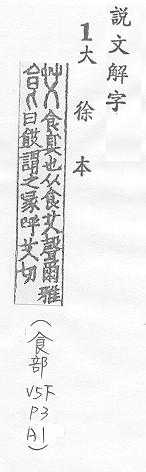 説文解字
1大徐本
餀食臭也从食艾聲爾雅
曰餀謂之喙呼艾切
(食部 V5下 P3 A1)